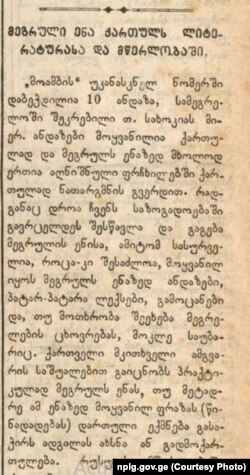 მეგრული ენა ქართულს ლიტე-
რატურასა და მწერლობაში.
„მოამბის" უკანასკნელ ნომერში
დაბეჭდილია 10 ანდაზა, სამეგრე-
ლოში შეკრებილი თ. სახოკიას მი-
ერ. ანდაზები მოყვანილია ქართუ-
ლად და მეგრულს ენაზედ მხოლოდ
ერთია აღნიშნული ფრჩხილებში ქარ-
თულად ნათარგმნის გვერდით. რად-
განაც დროა ჩვენს საზოგადოებაში
გავრცელდეს შესწავლა და გაგება
მეგრულის ენისა, ამიტომ სასურვე-
ლია, როცა-კი შესაძლოა, მოყვანილ
იყოს მეგრულს ენაზედ ანდაზები,
პატარ-პატარა ლექსები, გამოცანები
და, თუ მოთხრობა შეეხება მეგრე-
ლების ცხოვრებას, მოკლე საუბა-
რიც. ქართველი მკითხველი ამგვა-
რის საშუალებით გაიცნობს პრაქტი-
კულად მეგრულს ენას, თუ მეტად-
რე ამ ენაზედ მოყვანილ ფრაზას (წი-
ნადადებას) დართული ექმნება გასა-
ჭირს ადგილას ახსნა ან გადმოქარ-
თულება.
nplg.gov.ge (Courtesy Photo)